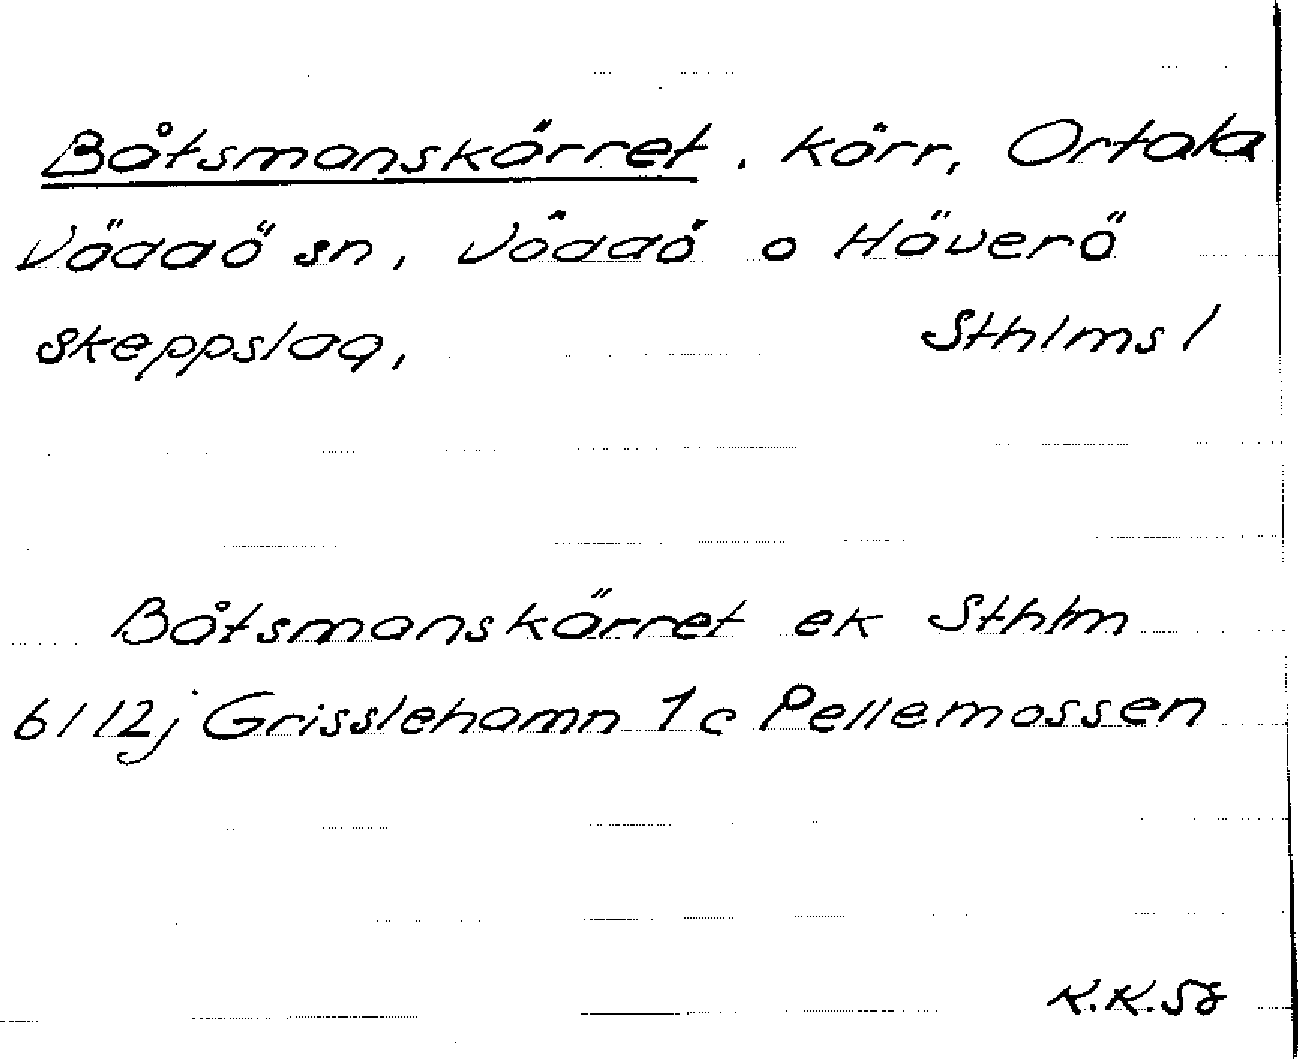 Båtsmanskärret. kärr, Ortala
Väddö sn, Väddö o Häverö
skeppslag, Sthlms l
Båtsmanskärret ek Sthlm
6112j Grisslehamn 1c Pellemossen
K.K.58